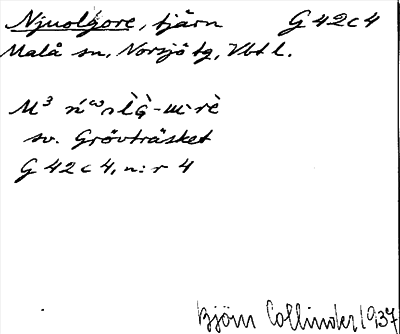 Njuolgore, tjärn G 42 c 4
Malå sn, Norsjö tg, Vbt l.
M³
sv. Grövträsket
G 42 c 4, n:r 4
Björn Collinder 1937